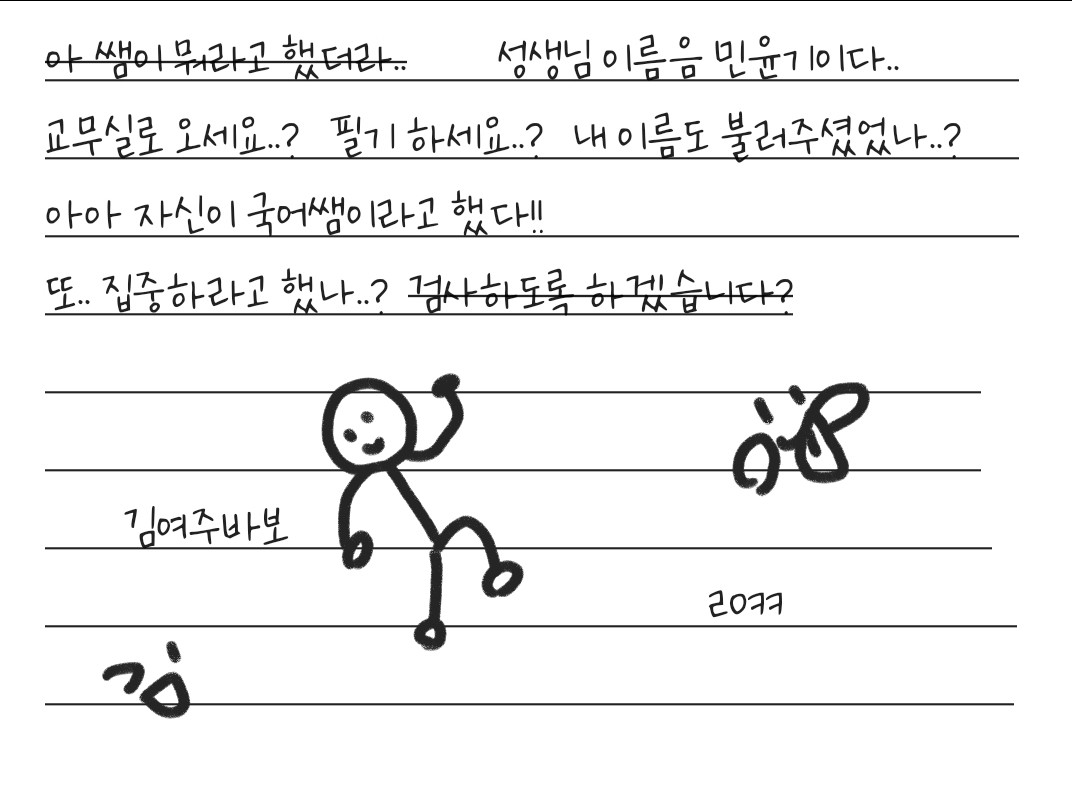 아 쌤이 뭐라고 했더라.. 성생님 이름음 민윤기이다..
교무실로 오세요..? 필기 하세요..? 내 이름도 불러주셨었나..?
아아 자신이 국어쌤이라고 했다!!
또.. 집중하라고 했나..? 검사하도록 하겠습니다?
김여주바보
ㄹㅇㅋㅋ